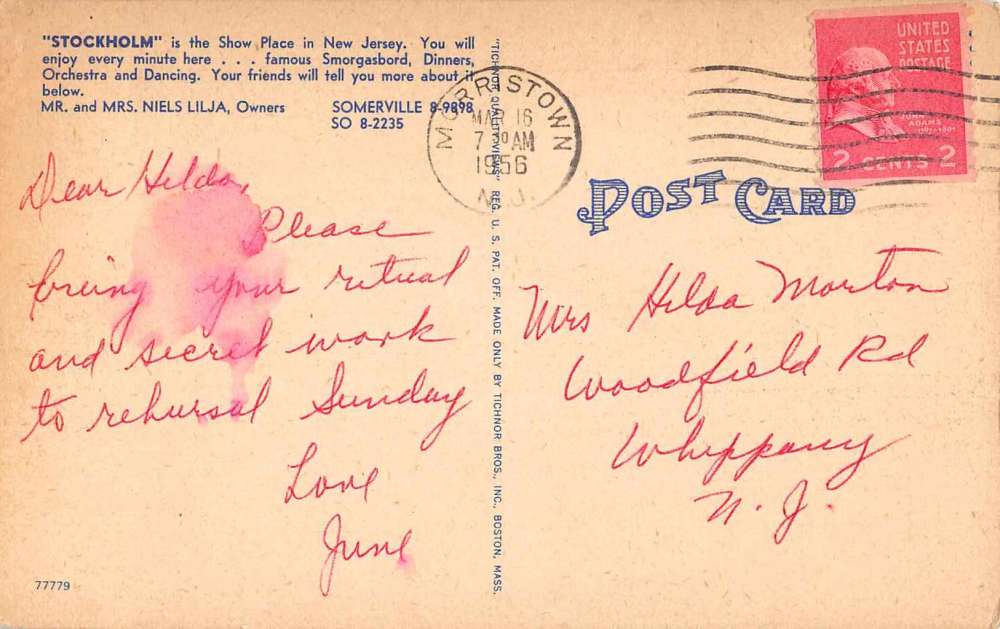 "STOCKHOLM" is the Show Place in New Jersey. You will
enjoy every minute here . . . famous Smorgasbord, Dinners,
Orchestra and Dancing. Your friends will tell you more about it
below.
MR. and MRS. NIELS LILJA, Owners SOMERVILLE 8-9898
SO 8-2235
MORRISTOWN
MAR 16
7 30 AM
1956
N.J.
UNITED
STATES
POSTAGE
JOHN
ADAMS
1797-1801
2 CENTS 2
POST CARD
Dear Hilda,
Please
bring your ritual
and secret work
to rehursal Sunday
Love
June
"TICHNOR QUALITY VIEWS" REG. U. S. PAT. OFF. MADE ONLY BY TICHNOR BROS., INC., BOSTON, MASS.
Mrs Hilda Morton
Woodfield Rd
Whippany
N. J.
77779